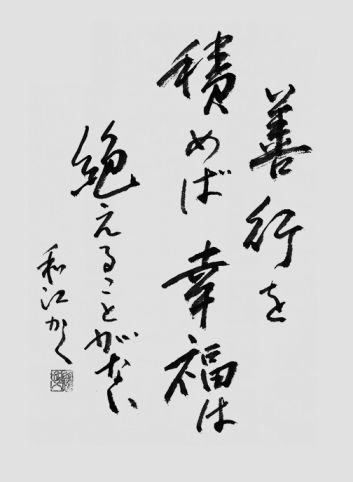 善行を
積めば幸福は
絶えることがない
和江かく